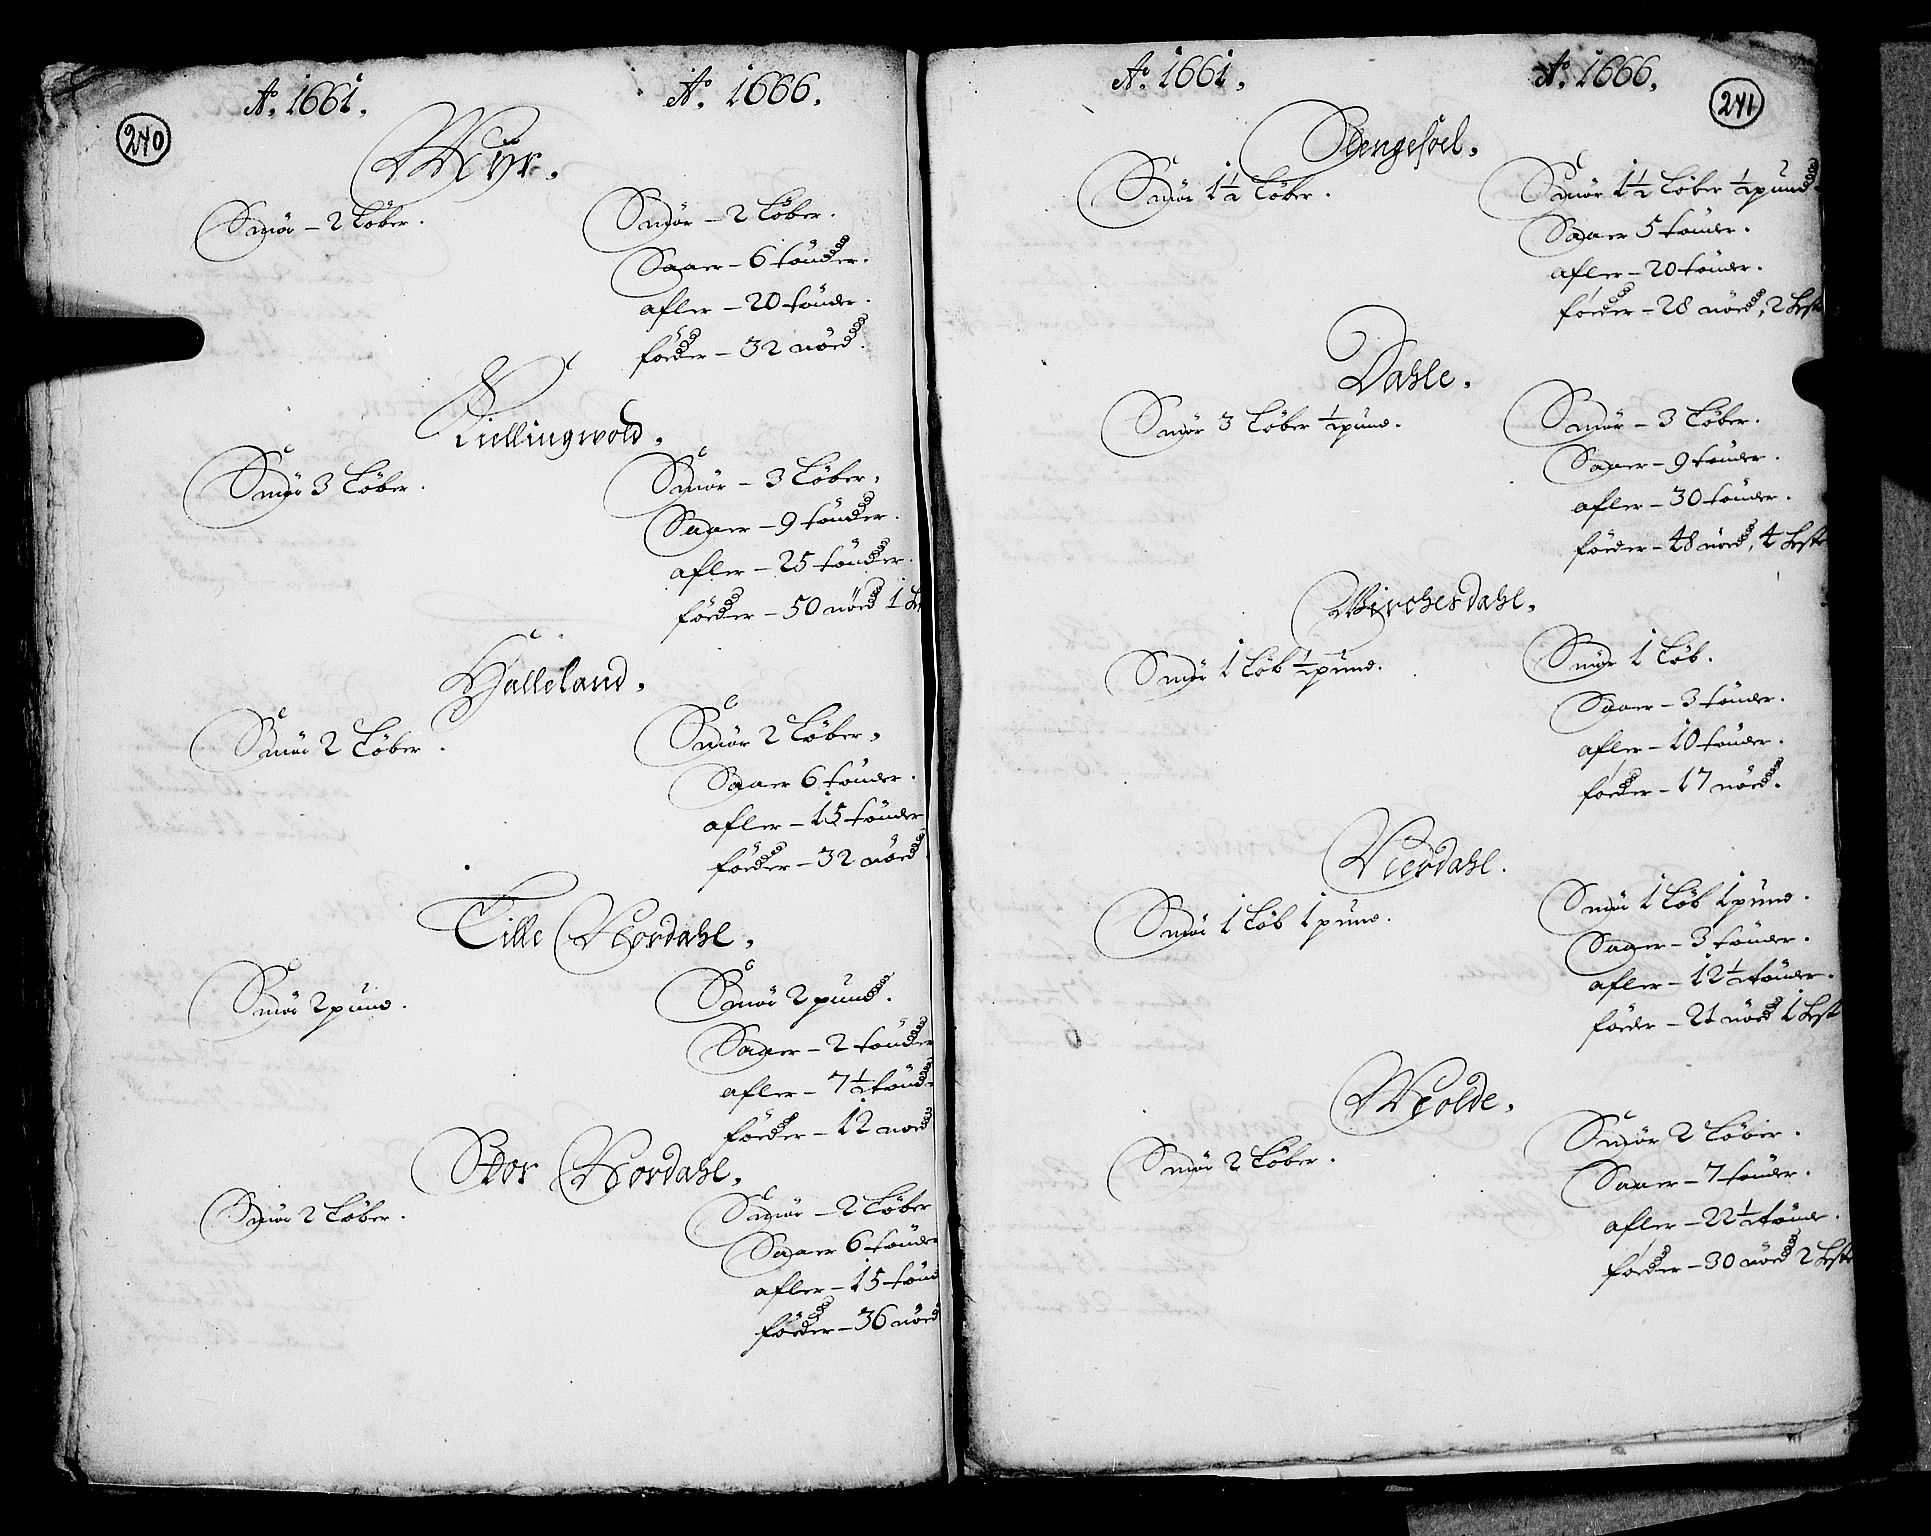 240
Ao. 1661. Ao. 1666.
Myr.
Smör – 2 Löber. Smör – 2 Löber.
Saaer – 6 tönder.
afler – 20 tönder.
föeder – 32 nöed.
Kiellingwold.
Smör 3 Löber. Smör – 3 Löber.
Saaer – 9 tönder.
afler – 25 tönder.
föeder – 50 nöed 1
Halleland.
Smör 2 Löber. Smör 2 Löber.
Saaer 6 tönder.
afler – 15 tönder
föeder – 32 nöed
Lille Nordahl.
Smör 2 pund. Smör 2 pund.
Saaer – 2 tönder
afler – 7½ tönd
föeder – 12 nöed
Stor Nordahl.
Smör 2 Löber. Smör – 2 Löber
Saaer 6 tönder
afler – 15 tönd
föeder – 36 nöed
241
Ao. 1661. Ao. 1666.
Stengesoel.
Smör 1½ Löber. Smör 1½ Löber ½ pund.
Saaer 5 tönder.
afler – 20 tönder.
föeder – 28 nöed, 2 hest
Dahle.
Smör 3 Löber ½ pund. Smör – 3 Löber.
Saaer – 9 tönder.
afler – 30 tönder.
föeder – 48 nöed, 4 heste
Birchesdahl.
Smör 1 Löb ½ pund. Smör 1 Löb.
Saaer – 3 tönder.
afler – 10 tönder.
föeder – 17 nöed.
Nerdahl.
Smör 1 Löb 1 pund. Smör 1 Löb 1 pund.
Saaer – 3 tönder.
afler – 12½ tönder.
föeder – 21 nöed 1 hest
Molde.
Smör 2 Löber. Smör 2 Löber.
Saaer – 7 tönder.
afler – 22½ tönder.
föeder – 30 nöed 2 heste